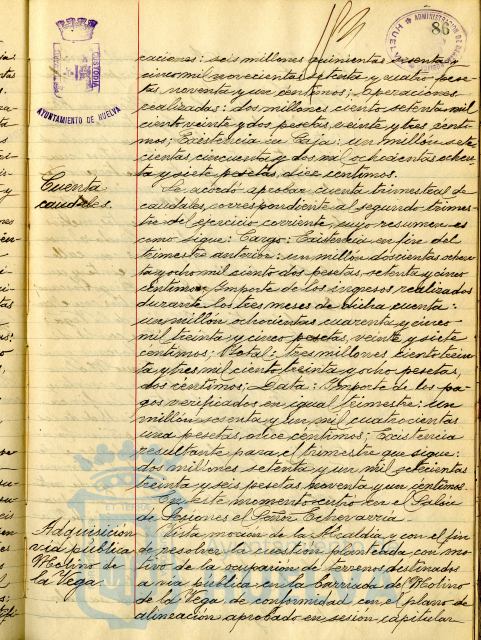 86
CUSTODIA
AYUNTAMIENTO DE HUELVA
ADMINISTRACION DE
HUELVA
caciones: seis millones quinientas sesenta y
cinco mil novecientas setenta y cuatro pese-
tas noventa y un centimos; Operaciones
realizadas: dos millones ciento setenta mil
ciento veinte y dos pesetas, veinte y tres centi-
mos; Existencia en Caja: un millón sete-
cientas cincuenta y dos mil ochocientas ochen-
ta y siete pesetas, diez centimos.
Cuenta
caudales.
Se acordó aprobar cuenta trimestral de
caudales, correspondiente al segundo trimes-
tre del ejercicio corriente, cuyo resumen es
como sigue: Cargo: Existencia en fin del
trimestre anterior: un millón doscientas ochen-
ta y ocho mil ciento dos pesetas, setenta y cinco
centimos; Importe de los ingresos realizados
durante los tres meses de dicha cuenta:
un millón ochocientas cuarenta y cinco
mil treinta y cinco pesetas, veinte y siete
centimos; Total: tres millones ciento trein-
ta y tres mil ciento treinta y ocho pesetas,
dos centimos; Data: Importe de los pa-
gos verificados en igual trimestre: un
millón sesenta y un mil cuatrocientas
una pesetas, once centimos; Existencia
resultante para el trimestre que sigue:
dos millones setenta y un mil setecientas
treinta y seis pesetas noventa y un centimos.
En este momento entró en el Salón
de Sesiones el Señor Echevarria.
Adquisición
via pública
Molino de
la Vega
Vista moción de la Alcaldía con el fin
de resolver la cuestión planteada con mo-
tivo de la ocupación de terrenos destinados
a via pública en la barriada del Molino
de la Vega de conformidad con el plano de
alineación aprobado en sesión capitular
Ayuntamiento de
HUELVA